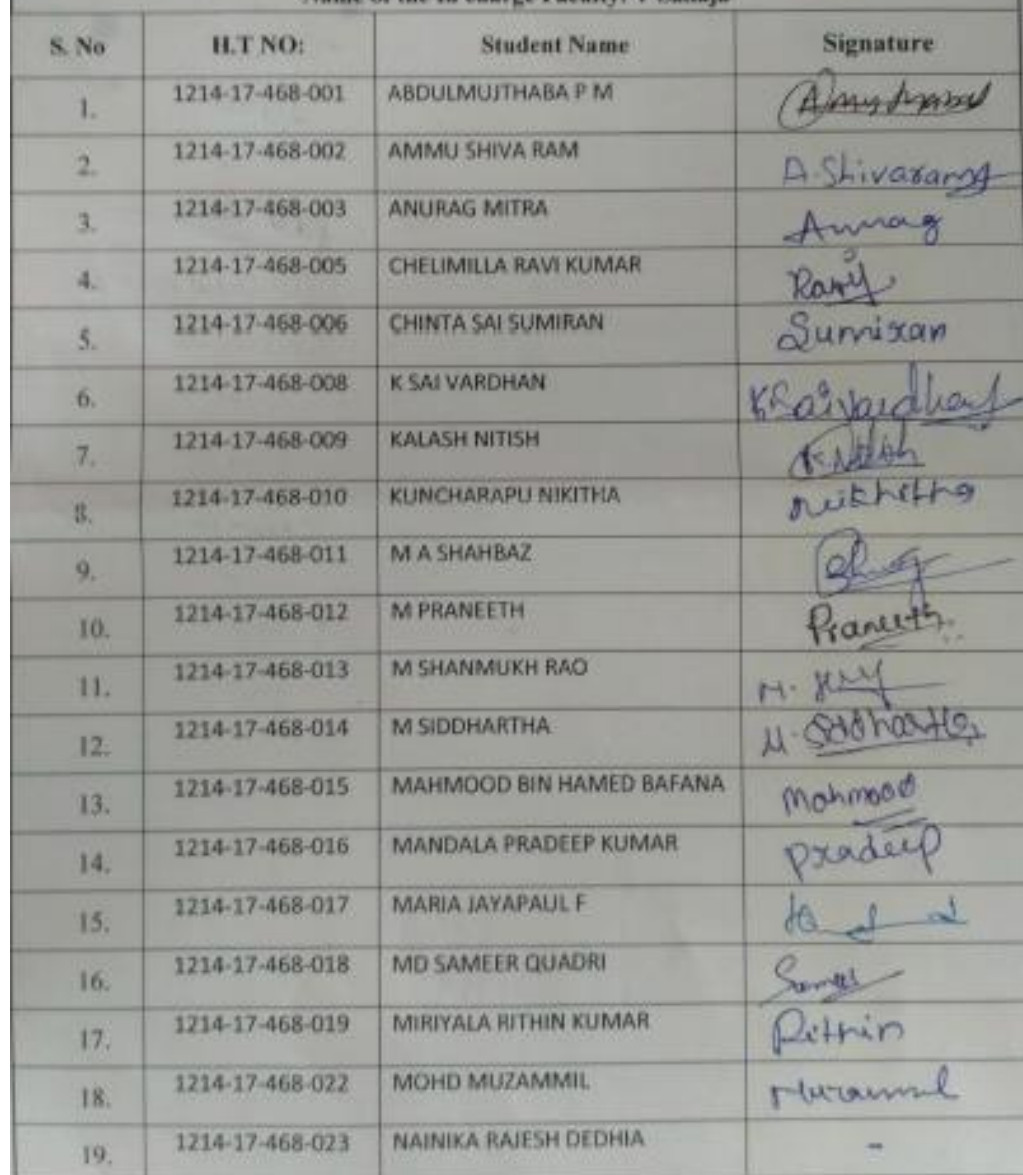 Name of the In-charge Faculty:
S. No H.T NO: Student Name Signature
1. 1214-17-468-001 ABDULMUJTHABA P M
2. 1214-17-468-002 AMMU SHIVA RAM A.Shivaram
3. 1214-17-468-003 ANURAG MITRA Anurag
4. 1214-17-468-005 CHELIMILLA RAVI KUMAR Ravi
5. 1214-17-468-006 CHINTA SAI SUMIRAN Sumiran
6. 1214-17-468-008 K SAI VARDHAN K Sai Vardhan
7. 1214-17-468-009 KALASH NITISH K.Nitish
8. 1214-17-468-010 KUNCHARAPU NIKITHA Nikhitha
9. 1214-17-468-011 M A SHAHBAZ
10. 1214-17-468-012 M PRANEETH Praneeth
11. 1214-17-468-013 M SHANMUKH RAO M.
12. 1214-17-468-014 M SIDDHARTHA M. Siddhartha
13. 1214-17-468-015 MAHMOOD BIN HAMED BAFANA Mahmood
14. 1214-17-468-016 MANDALA PRADEEP KUMAR Pradeep
15. 1214-17-468-017 MARIA JAYAPAUL F
16. 1214-17-468-018 MD SAMEER QUADRI Sameer
17. 1214-17-468-019 MIRIYALA RITHIN KUMAR Rithin
18. 1214-17-468-022 MOHD MUZAMMIL Muzammil
19. 1214-17-468-023 NAINIKA RAJESH DEDHIA -